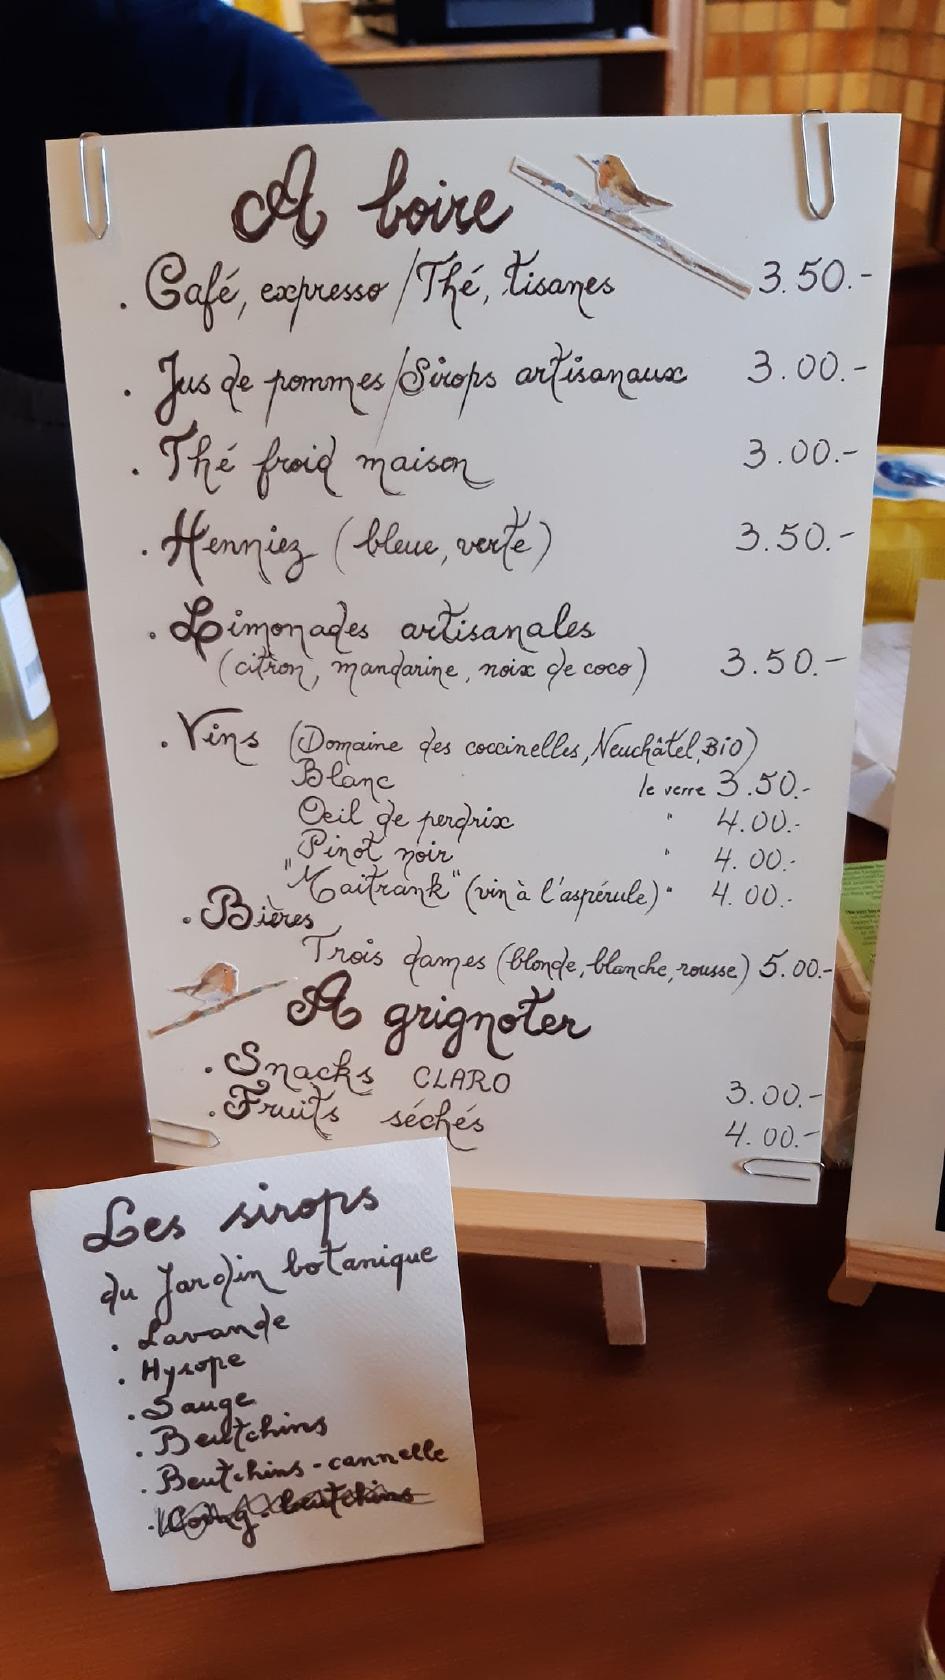 A boire
. Café, expresso / Thé, tisanes 3.50.-
. Jus de pommes / Sirops artisanaux 3.00.-
. Thé froid maison 3.00.-
. Henniez (bleue, verte) 3.50.-
. Limonades artisanales
(citron, mandarine, noix de coco) 3.50.-
. Vins (Domaine des coccinelles, Neuchâtel, BIO)
Blanc le verre 3.50.-
Oeil de perdrix " 4.00.-
Pinot noir " 4.00.-
"Maitrank" (vin à l'aspérule) " 4.00.-
. Bières
Trois dames (blonde, blanche, rousse) 5.00.-
A grignoter
. Snacks CLARO 3.00.-
. Fruits séchés 4.00.-
Les sirops
du Jardin botanique
. Lavande
. Hysope
. Sauge
. Beutchins
. Beutchins-cannelle
. beutchins